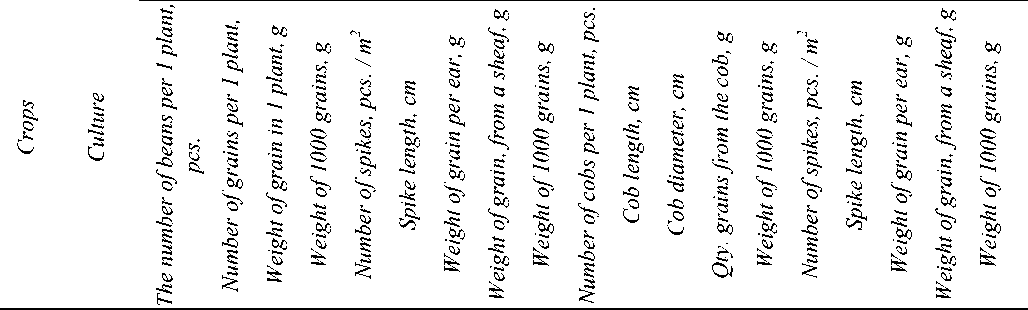 Crops
Culture
The number of beans per 1 plant,
pcs.
Number of grains per 1 plant,
Weight of grain in 1 plant, g
Weight of 1000 grains, g
Number of spikes, pcs. / m²
Spike length, cm
Weight of grain per ear, g
Weight of grain. from a sheaf, g
Weight of 1000 grains, g
Number of cobs per 1 plant, pcs.
Cob length, cm
Cob diameter, cm
Qty. grains from the cob, g
Weight of 1000 grains, g
Number of spikes, pcs. / m²
Spike length, cm
Weight of grain per ear, g
Weight of grain. from a sheaf, g
Weight of 1000 grains, g